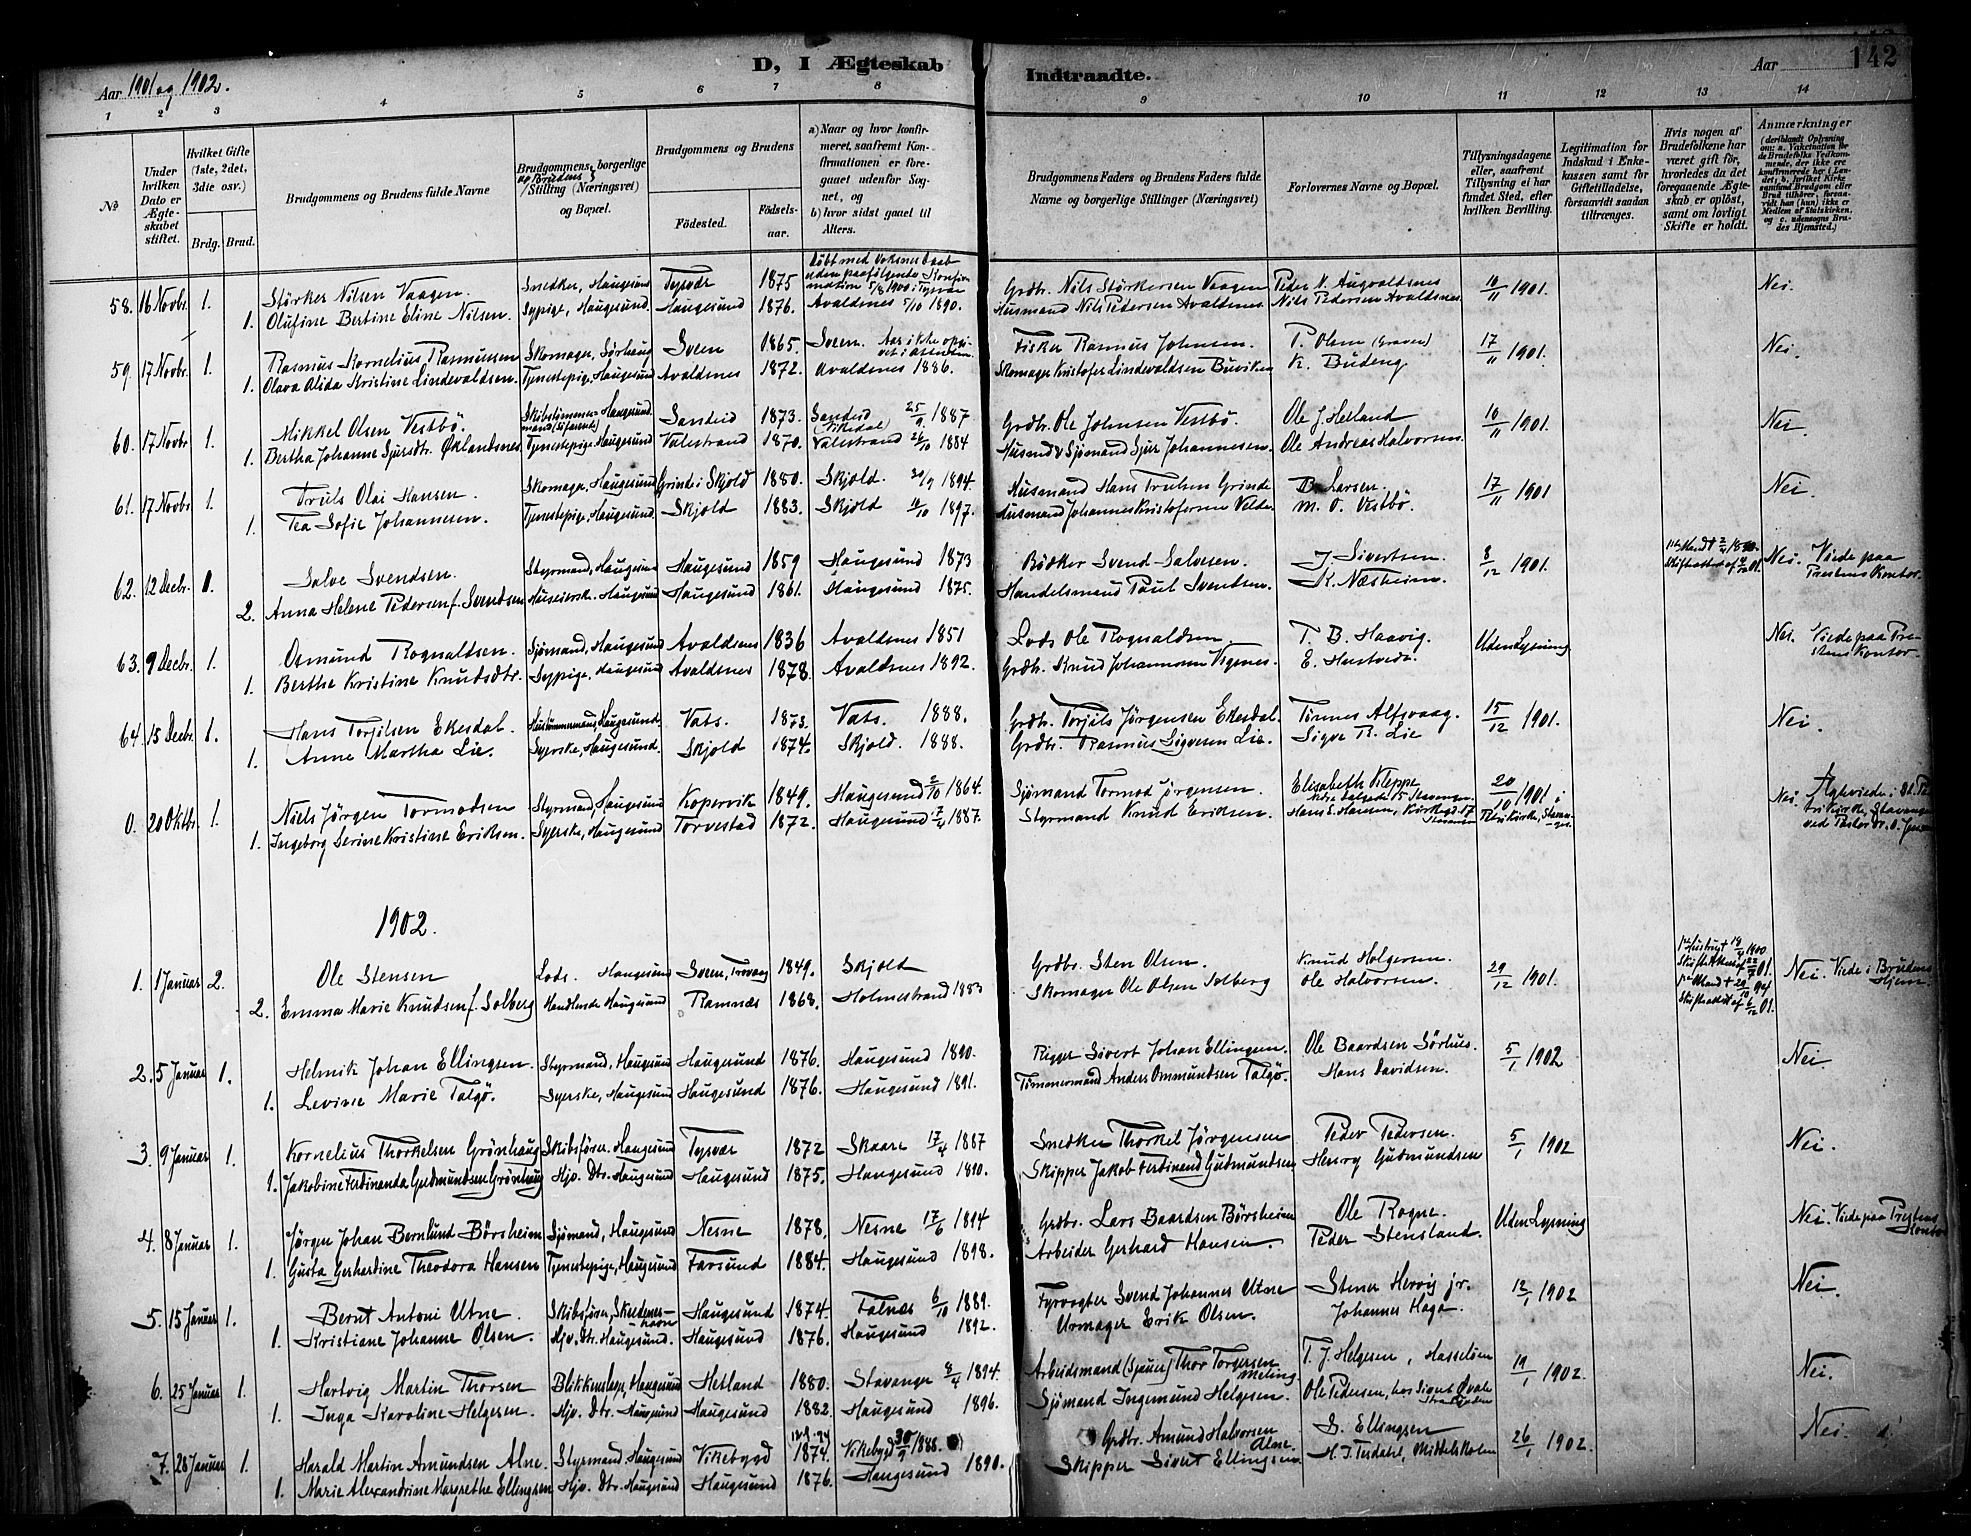 Aar 1901 og 1902.
D, I Ægteskab
Indtraadte.
Aar
142
1 2 3 4 5 6 7 8 9 10 11 12 13 14
No
Under hvilken Dato er Ægteskabet stiftet.
Hvilket Gifte (1ste, 2det, 3die osv.)
Brdg. Brud.
Brudgommens og Brudens fulde Navne
Brudgommens og Brudens borgerlige Stilling (Næringsvei) og Bopæl.
Brudgommens og Brudens
Fødested.
Fødselsaar.
a) Naar og hvor konfirmeret, saafremt Konfirmationen er foregaaet udenfor Sognet, og
b) hvor sidst gaaet til Alters.
Brudgommens Faders og Brudens Faders fulde Navne og borgerlige Stillinger (Næringsvei)
Forlovernes Navne og Bopæl.
Tillysningsdagene eller, saafremt Tillysning ei har fundet Sted, efter hvilken Bevilling.
Legitimation for Indskud i Enkekassen samt for Giftetilladelse, forsaavidt saadan tiltrænges.
Hvis nogen af Brudefolkene har været gift før, hvorledes da det foregaaende Ægteskab er opløst, samt om lovligt Skifte er holdt.
Anmærkninger
(deriblandt Oplysning om: a. Vakcination for de Brudefolks Vedkommende, der ikke ere konfirmerede her i Landet; b. hvilket Kirkesamfund Brudgom eller Brud tilhører, forsaavidt han (hun) ikke er Medlem af Statskirken, og c. udensogns Brudes Hjemsted.)
58. 16 Novbr. 1. Størker Nilsen Vaagen. Snedker, Haugesund Tysvær 1875 Døbt med Voksnes Daab uden paafølgende Konfirmation 5/8 1900 i Tysvær Grdbr. Nils Størkersen Vaagen Peder N. Augvaldsnes 10/11 1901. Nei.
1. Olufine Bertine Eline Nilsen. Sypige, Haugesund. Haugesund 1876. Avaldsnes 5/10 1890. Husmand Nils Pedersen Avaldsnes Nils Pedersen Avaldsnes
59. 17 Novbr. 1. Rasmus Kornelius Rasmussen Skomager, Sørhaug Sveen 1865. Sveen. Aar ikke opgivet i Attesten Fisker Rasmus Johnsen. T. Olsen (Graver) 17/11 1901. Nei.
1. Olava Alida Kristine Lindevaldsen. Tjenestepige, Haugesund Avaldsnes 1872. Avaldnes 1886. Skomager Kristofer Lindevaldsen Buviken K. Budeng
60. 17 Novbr. 1. Mikkel Olsen Vestbø. Skibstømmermand Haugesund. Sandeid 1873. Sandeid (Vikedal) 25/9 1887 Grdbr. Ole Johnsen Vestbø. Ole J. Helland 10/11 1901. Nei.
1. Bertha Johanne Sjursdtr. Øklandsnes Tjenestepige, Haugesund Valestrand 1870. Valestrand 26/10 1884 Husmd & Sjømand Sjur Johannessen. Ole Andreas Halvorsen.
61. 17 Novbr. 1. Truls Olai Hansen. Skomager, Haugesund Grinde i Skjold 1880. Skjold. 30/9 1894. Husmand Hans Trulsen Grinde B. Larsen. 17/11 1901 Nei.
1. Tea Sofie Johannesen. Tjenestepige, Haugesund. Skjold 1883. Skjold 10/10 1897. Husmand Johannes Kristofersen Velde. M. O. Vestbø.
62. 12 Decbr. 1. Salve Svendsen. Styrmand, Haugesund Haugesund 1859 Haugesund 1873 Bødker Svend Salvesen. J. Sivertsen. 8/12 1901. Nei. Viede paa Prestens Kontor.
2. Anna Helene Pedersen f. Svendsen Huseierske. Haugesund Haugesund 1861. Haugesund 1875. Handelsmand Paul Svendsen. K. Næsheim.
63. 9 Decbr. 1. Osmund Rognaldsen. Sjømand, Haugesund Avaldsnes 1836 Avaldsnes 1851 Lods Ole Rognaldsen. T. B. Haavig. Uden Lysning Nei. Viede paa Prestens Kontor.
1. Berthe Kristine Knudsdtr. Sypige, Haugesund Avaldsnes 1878. Avaldsnes 1892. Grdbr. Knud Johannesen Vignes. E. Hustvedt.
64. 15 Decbr. 1. Hans Torjilsen Ekesdal. Haugesund. Vats. 1873. Vats. 1888. Grdbr. Torjils Jørgensen Ekesdal. Tønnes Alfsvaag. 15/12 1901. Nei
1. Anne Martha Lie. Syerske, Haugesund. Skjold 1874. Skjold. 1888. Grdbr. Rasmus Sigvesen Lie. Sigve R. Lie
0. 20 Oktbr. 1. Niels Jørgen Tormodsen Styrmand, Haugesund Kopervik 1849. Haugesund 2/10 1864. Sjømand Tormod Jørgensen. Elisabeth Kleppe 20/10 1901 i Petri Kirke, Stavanger Nei. Ægtviede i St. Petri Kirke, Stavanger ved Pastor
1. Ingeborg Serine Kristine Eriksen. Syerske, Haugesund Torvestad 1872. Haugesund 7/4 1887. Styrmand Knud Eriksen. Hans E. Hansen, Stavanger
1902.
1. 1 Januar 2. Ole Stensen Lods. Haugesund Sveen, 1849. Skjold Grdbr. Sten Olsen. Knud Holgersen. 29/12 1901. Nei. Viede i Brudens Hjem.
2. Emma Marie Knudsen f. Solberg Handlende Haugesund Ramnæs 1868. Holmestrand 1883 Skomager Ole Olsen Solberg Ole Halvorsen.
2. 5 Januar 1. Helmik Johan Ellingsen. Styrmand, Haugesund Haugesund 1876. Haugesund 1890. Rigger Sivert Johan Ellingsen. Ole Baardsen Sørhus. 5/1 1902 Nei
1. Levine Marie Talgø. Syerske, Haugesund Haugesund 1876. Haugesund 1891. Tømmermand Anders Ommundsen Talgø. Hans Davidsen.
3. 9 Januar 1. Kornelius Thorkelsen Grønhaug Skibsfører. Haugesund Tysvær 1872 Skaare 17/4 1887 Snedker Thorkel Jørgensen Peder Pedersen. 5/1 1902 Nei.
1. Jakobine Ferdinanda Gudmundsen Grønhaug Hjv. Dtr. Haugesund Haugesund 1875. Haugesund 1890. Skipper Jakob Ferdinand Gudmundsen Henry Gudmundsen
4. 8 Januar 1. Jørgen Johan Bernlund Børsheim Sjømand, Haugesund Nesne 1878. Nesne 17/6 1894 Grdbr. Lars Baardsen Børsheim Ole Rogne. Uden Lysning Nei. Viede paa Prestens Kontor
1. Gusta Gerhardine Theodora Hansen Tjenestepige, Haugesund Farsund 1884. Haugesund 1898. Arbeider Gerhard Hansen. Peder Stensland.
5. 15 Januar 1. Bernt Antoni Utne. Skibsfører, Skudeneshavn Haugesund 1874. Falnæs 6/10 1889. Fyrvogter Svend Johannes Utne Stener Hervig jr. 12/1 1902 Nei.
1. Kristiane Johanne Olsen. Hjv. Dtr. Haugesund. Haugesund 1876. Haugesund 1892. Urmager Erik Olsen. Johannes Haga.
6. 25 Januar 1. Hartvig Martin Thorsen Blikkenslager, Haugesund Hetland 1880. Stavanger 8/4 1894. Arbeidsmand (Sjauer) Thor Torgersen Meling T. J. Helgesen, Hasseløen 19/1 1902. Nei.
1. Inga Karoline Helgesen. Hjv. Dtr. Haugesund Haugesund 1882. Haugesund 1896. Sjømand Ingemund Helgesen. Ole Pedersen, hos Sivert Strandgaden
7. 28 Januar 1. Harald Martin Amundsen Alne. Styrmand Haugesund Vikebygd 1874. Vikebygd 30/9 1888. Grdbr. Amund Halvorsen Alne. S. Ellingsen 26/1 1902. Nei.
1. Marie Alexandrine Margrethe Ellingsen Hjv. Dtr. Haugesund Haugesund 1876. Haugesund 1890. Skipper Sivert Ellingsen H. J. Tesdahl, Middelskolen